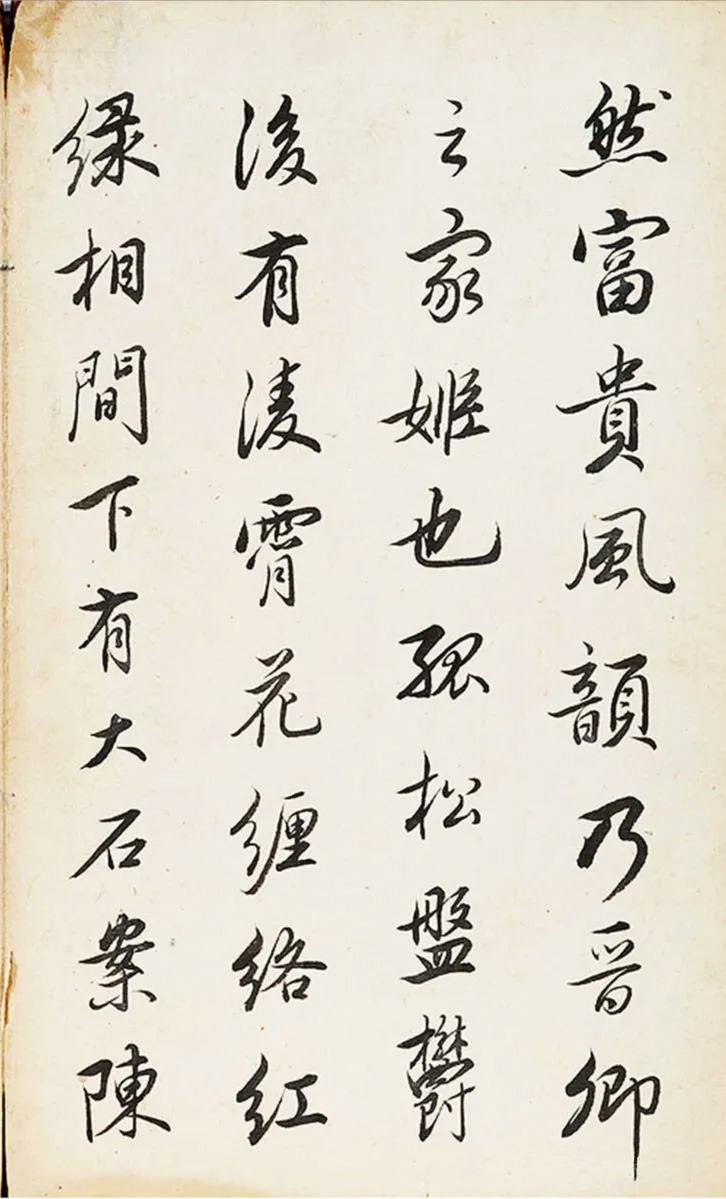 然富貴風韻乃晉卿
之家姬也孤松盤鬱
後有凌霄花纏絡紅
綠相間下有大石案陳